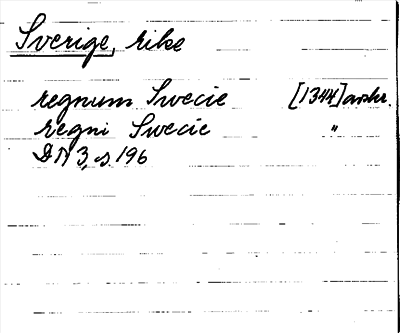 Sverige, rike
regnum Swecie [1344] avskr.
regni Swecie "
DN 3, s 196